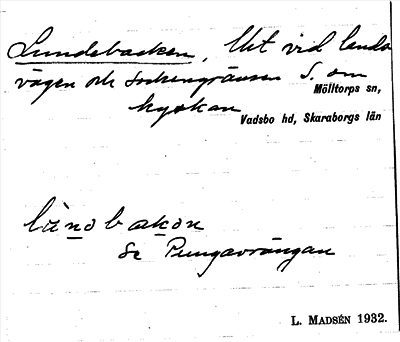 Lundebacken, Ut vid lands
vägen och sockengränsen S. om
kyrkan
Mölltorps sn,
Vadsbo hd, Skaraborgs län
lùnobakan
Se Pungavrångan
L. MADSÉN 1932.